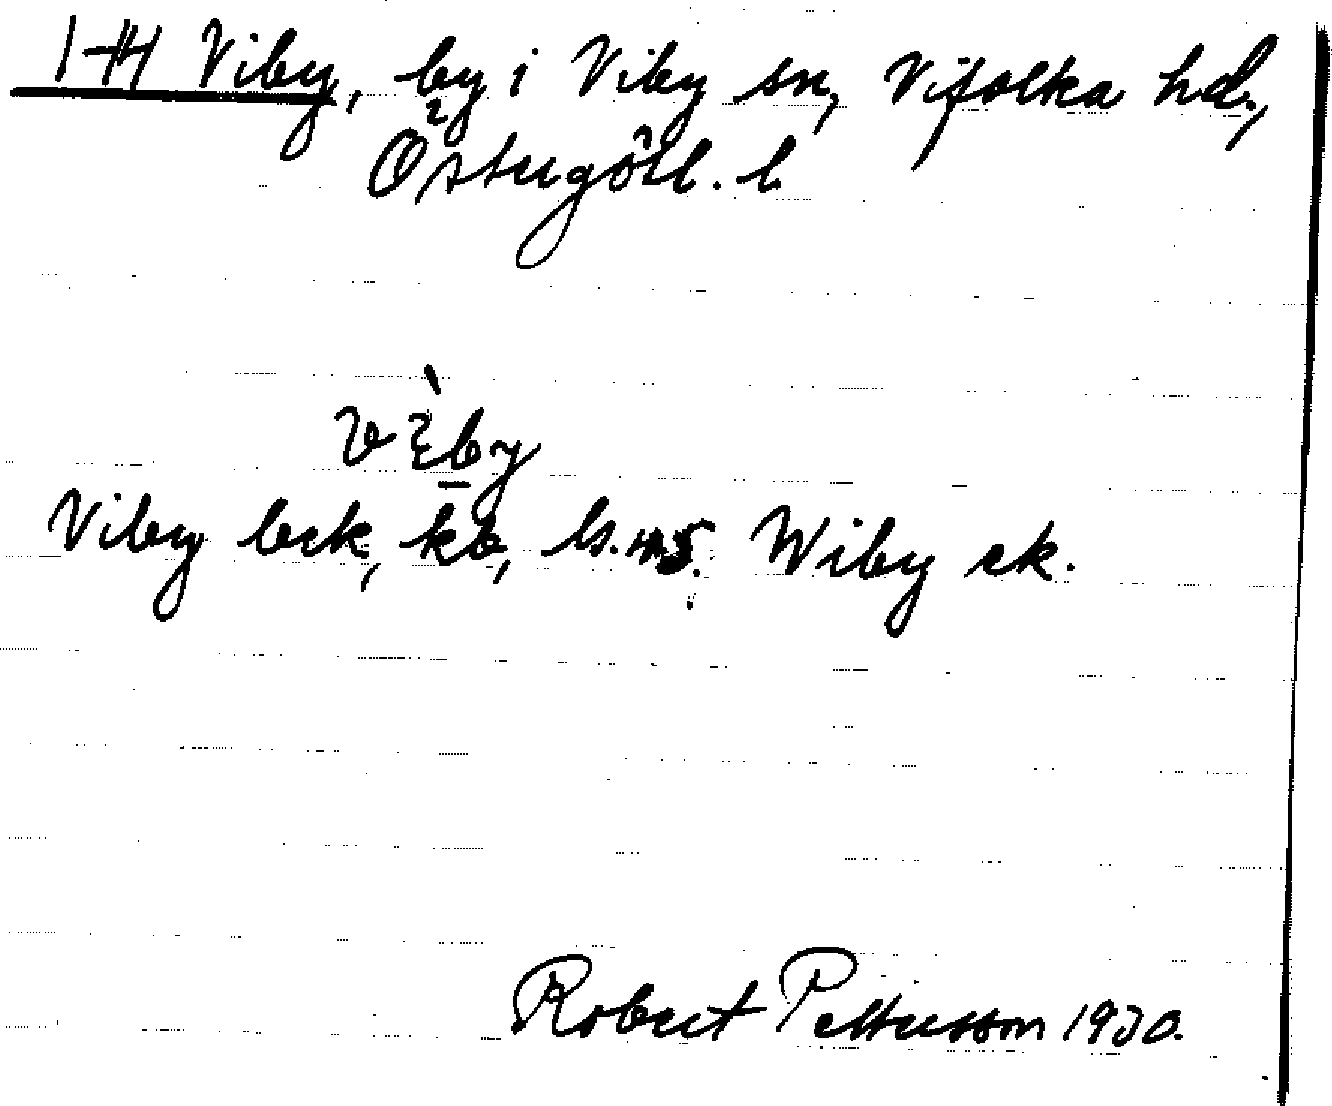 1-4 Viby, by i Viby sn, Vifolka hd.,
Östergötl. l.
vèby
Viby bek, kb, ls. Wiby ek.
Robert Pettersson 1930.